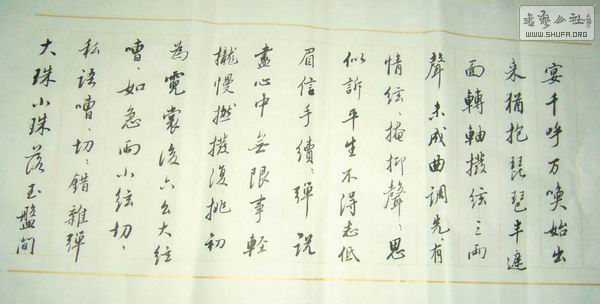 宴千呼万喚始出
来猶抱琵琶半遮
面轉軸撥絃三兩
聲未成曲調先有
情絃、掩抑聲、思
似訴平生不得志低
眉信手續、彈説
盡心中無限事輕
攏慢撚撥復挑初
為霓裳後六幺大絃
嘈如急雨小絃切、
私語嘈、切、錯雜彈
大珠小珠落玉盤間
書藝公社
WWW.SHUFA.ORG